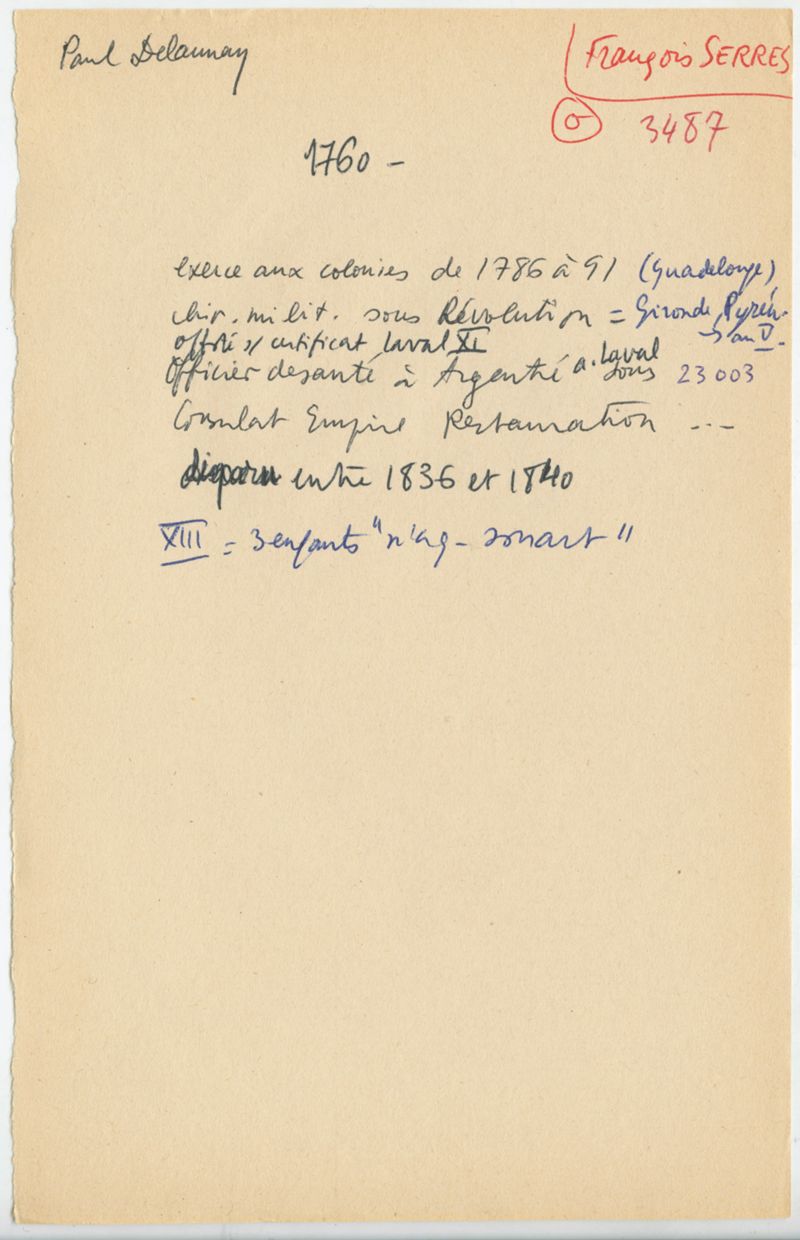 Paul Delaunay
François SERRES
3487
1760 -
exerce aux colonies de 1786 à 91 (Guadeloupe)
chir. milit. sous Révolution = Gironde, Pyrén.
→ an V.
offsté s/ certificat Laval XI
Officier de santé à Argentré a. Laval sous 23003
Consulat Empire Restauration ...
disparu entre 1836 et 1840
XIII = 3 enfants "n'ag-